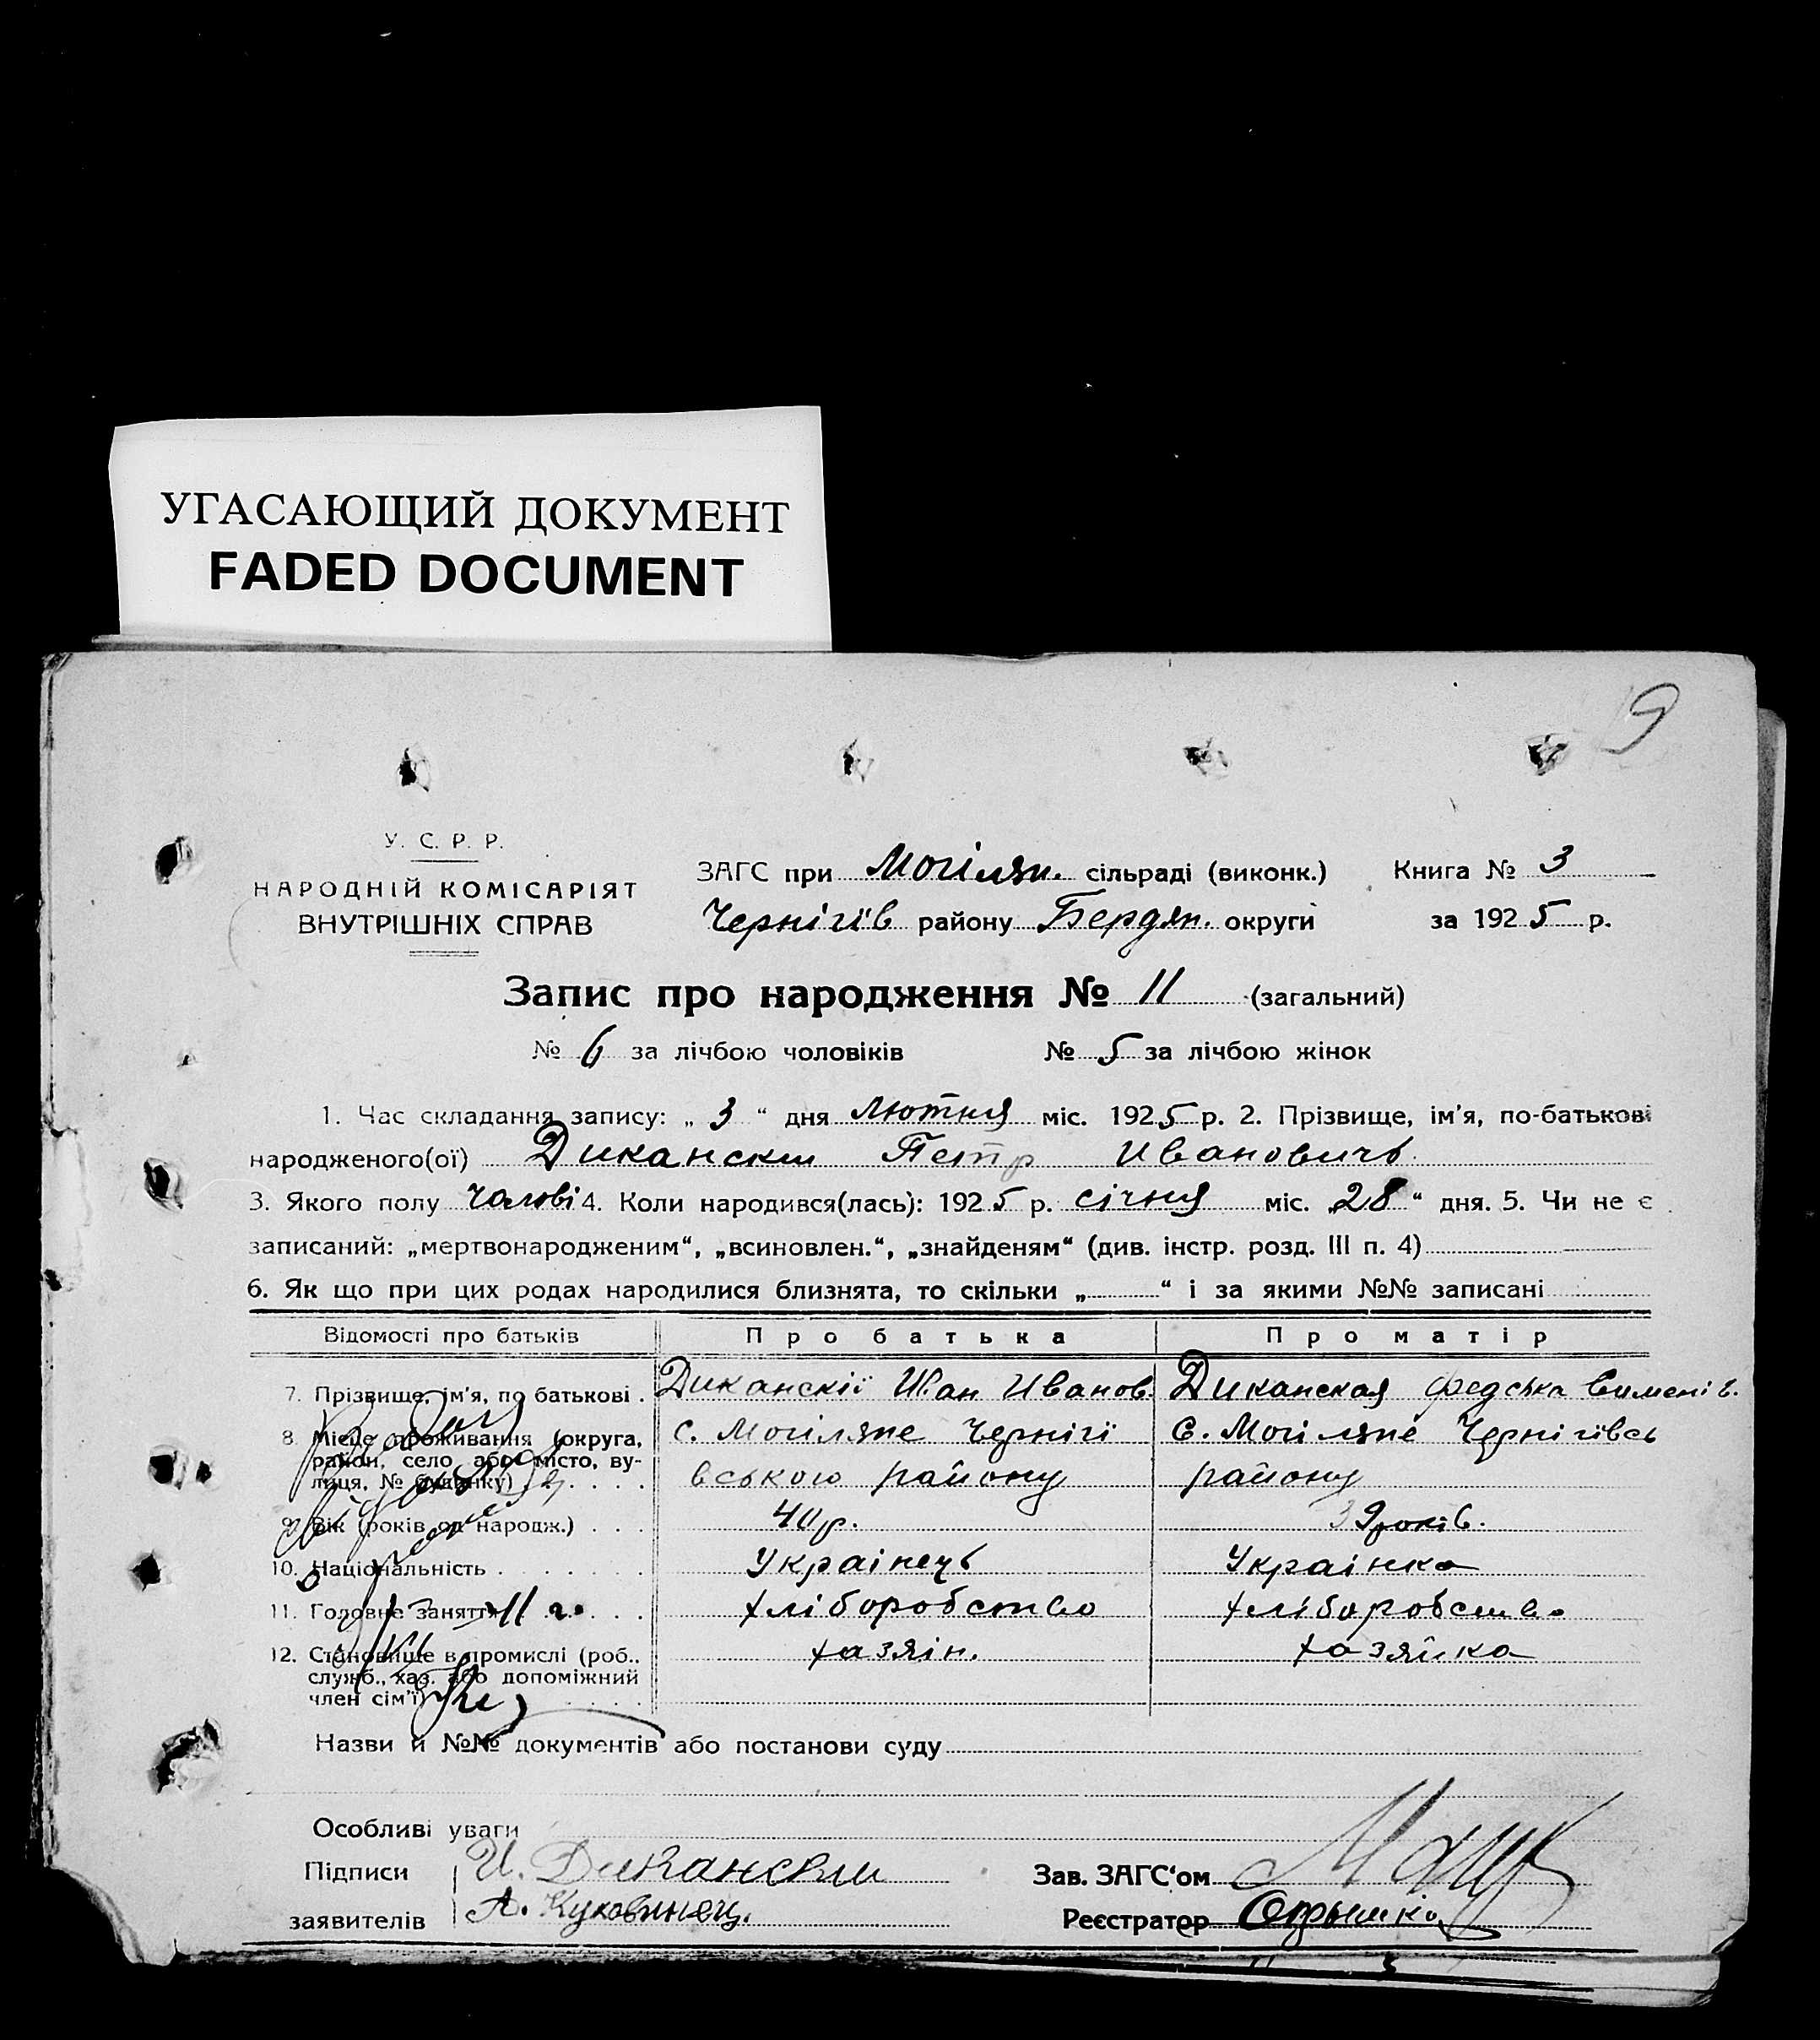 УГАСАЮЩИЙ ДОКУМЕНТ
FADED DOCUMENT
9
У. С. Р. Р.
НАРОДНІЙ КОМІСАРІЯТ
ВНУТРІШНІХ СПРАВ
ЗАГС при Могілян. сільраді (виконк.) Книга № 3
Чернігів району Бердян. округи за 1925 р.
Запис про народження № 11 (загальний)
№ 6 за лічбою чоловіків № 5 за лічбою жінок
1. Час складання запису: „3“ дня Лютня міс. 1925 р. 2. Прізвище, ім'я, по-батькові
народженого(ої) Диканский Петр Ивановичь
3. Якого полу чолові 4. Коли народився(лась): 1925 р. січня міс. „28“ дня. 5. Чи не є
записаний: „мертвонародженим“, „всиновлен.“, „знайденям“ (див. інстр. розд. III п. 4)
6. Як що при цих родах народилися близнята, то скільки „ “ і за якими №№ записані
Відомості про батьків Про батька Про матір
7. Прізвище, ім'я, по батькові . Диканскії Иван Иванов. Диканская
8. Місце проживання (округа, с. Могіляне Чернігі С. Могіляне Чернігівсь
район, село, або місто, ву-
лиця, № будинку) . . . . вською району району
9. Вік (років од народж.) . . . 40 р. 39 років.
10. Національність . . . . . . . Українець Українка
11. Головне заняття . . . . . . хліборобство хліборобство
12. Становище в промислі (роб., хазяін. хазяйка
служб., хаз. або допоміжний
член сім'ї) . . . .
Назви й №№ документів або постанови суду
Особливі уваги
Підписи И. Диканский Зав. ЗАГС'ом
заявителів А. Реєстратор